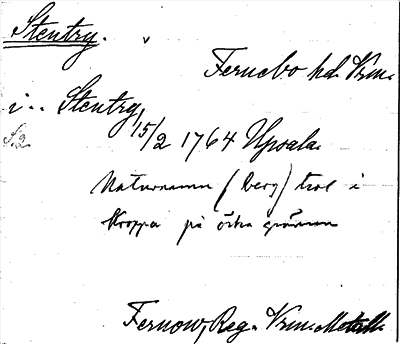 Stentry.
Fernebo hd. Vrm.
i.. Stentry,
S2
15/2 1764 Upsala.
Naturnamn (berg) trol i
Kroppa på östra gränsen
Fernow, Reg. Vrm. Metall.